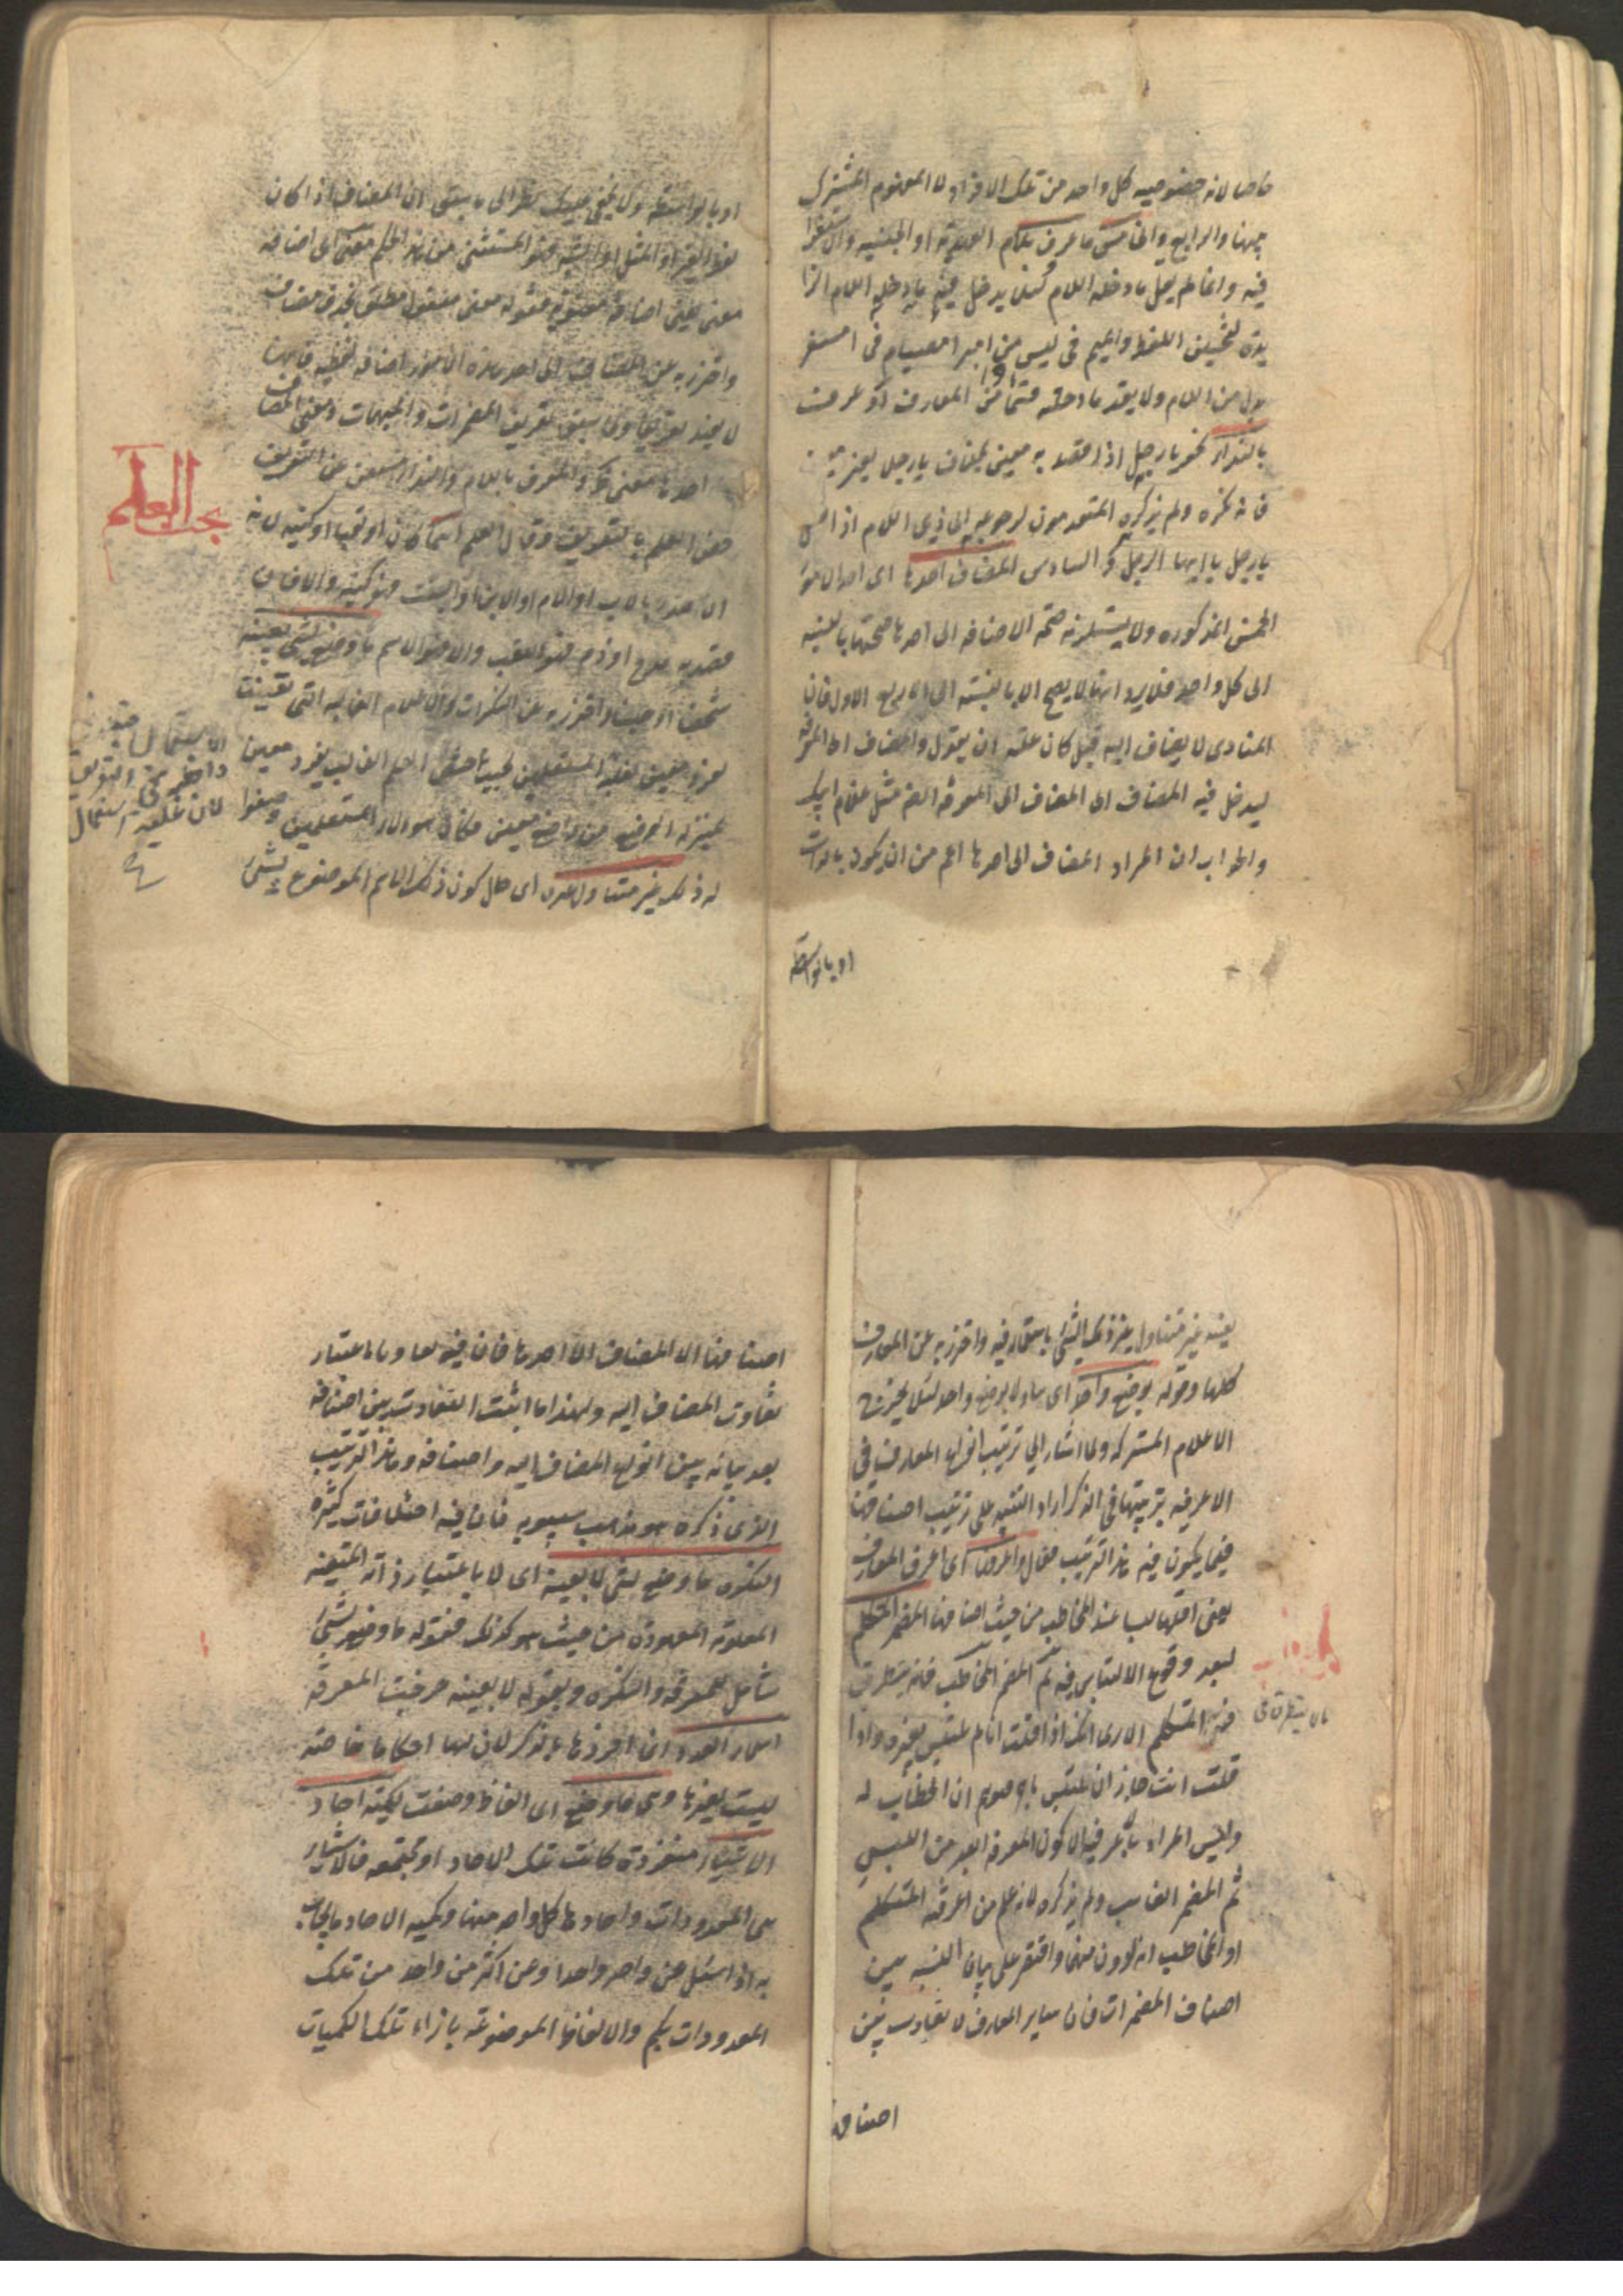 خاصا لانه خصوصيه كل واحد من تلك الافراد لا المفهوم المشترك
بينها والرابع والخامس ما عرف بلام العهدية او الجنسيه والاستغراق
فيه وانما لم يقل ما دخله اللام لئلا يدخل فيه ما دخله اللام الزا
يدة لتحسين اللفظ والميم في ليس من امبر امصيام في امسفر
بدل من اللام ولا يعد ما دخلته قسما اخر من المعارف او عرف
بالنداء نحو يا رجل اذا قصد به معين بخلاف يا رجلا لغير معين
فانه نكره ولم يذكره المتقدمون لرجوعه الى ذي اللام اذ اصل
يا رجل يا ايها الرجل والسادس المضاف الى احدها اى احد الامور
الخمس المذكوره ولا يستلزم صحة الاضافه الى احدها صحتها بالنسبه
الى كل واحد فلا يرد انها لا يصح الا بالنسبته الى الاربع الاول فان
المنادى لا يضاف اليه قيل كان عليه ان يقول والمضاف الى المعرفه
ليدخل فيه المضاف الى المضاف الى المعرفه ايضا مثل غلام ابيك
والجواب ان المراد المضاف الى احدها اعم من ان يكون بالذات
او بالواسطة
او بالواسطة ولا يخفى عليك نظرا الى ما سبق ان المضاف اذا كان
لفظ الغير او المثل او الشبه فهو المستثنى من هذا الحكم معنى اى اضافه
معنى يعنى اضافة معنوية فقوله معنى مفعول مطلق بحذف مضاف
واحترز به عن المضاف الى احد هذه الامور اضافه لفظيه فانها
لا يفيد تعريفا ولما سبق تعريف المضمرات والمبهمات ومعنى المضاف
الى احدها معنى و المعرف باللام والنداء مستغن عن التعريف
خص العلم بالتعريف وقال العلم اسما كان او لقبا او كنيه لانه
ان صدر بالاب او الام او الابن او البنت فهو كنيه والا فان
قصد به مدح او ذم فهو اللقب والا فهو الاسم ما وضع لشي بعينه
شخصا او جنسا واحترز به عن النكرات والاعلام الغالبه التى تعينت
لفرد معين لغلبة المستعملين بحيث اختص العلم الغالب بفرد معين
بمنزلة الوضع من واضع معين فكان هولاء المستعملين وضعوا
له ذلك غير متناول غيره اى حال كون ذلك الاسم الموضوع لشى
بحث العلم
الاستعمال
داخلة فى التعريف
لان غلبة استعمال
بعينه غير متناول غير ذلك الشى باستعماله فيه واحترز به عن المعارف
كلها وقوله بوضع واحد اى تناولا بوضع واحد لئلا يخرج
الاعلام المشتركه ولما اشار الى ترتيب انواع المعارف فى
الاعرفيه بترتيبها فى الذكر اراد التنبيه على ترتيب اصنافها
فيما يكون فيه هذا الترتيب فقال واعرفها اى اعرف المعارف
يعنى اقلها لبسا عند المخاطب من حيث اصنافها المضمر المتكلم
لبعد وقوع الالتباس فيه ثم المضمر المخاطب فانه يتطرق
فيه المتكلم الا ترى انك اذا قلت انا لم يلتبس بغيره واذا
قلت انت جاز ان يلتبس باخر فيتوهم ان الخطاب له
وليس المراد بالاعرفيه الا كون المعرفه ابعد من اللبس
ثم المضمر الغايب ولم يذكره لانه علم من اعرفية المتكلم
او المخاطب انه ادون منهما واقتصر على بيان النسبه بين
اصناف المضمرات فان ساير المعارف لا تفاوت بين
اصنافها
اصنافها الا المضاف الى احدها فان فيه تفاوتا باعتبار
تفاوت المضاف اليه ولهذا ما اثبت التفاوت بين اصنافه
بعد بيانه بين انواع المضاف اليه واصنافه وهذا الترتيب
الذى ذكره هو مذهب سيبويه فان فيه اختلافات كثيره
النكره ما وضع لشى لا بعينه اى لا باعتبار ذاته المتعينه
المعلومة المعهودة من حيث هو كذلك فقوله ما وضع لشى
شامل للمعرفة والنكره وبقوله لا بعينه خرجت المعرفه
اسماء العدد انما افردها بالذكر لان لها احكاما خاصة
ليست لغيرها وهى ما وضع اى الفاظ وضعت لكمية احاد
الاشياء منفردة كانت تلك الاحاد او مجتمعه فالاشياء
هى المعدودات واحادها كل واحد منها وكميه الاحاد ما يجاب
به اذا سئل عن واحد واحد او عن اكثر من واحد من تلك
المعدودات بكم والالفاظ الموضوعة بازاء تلك الكميات